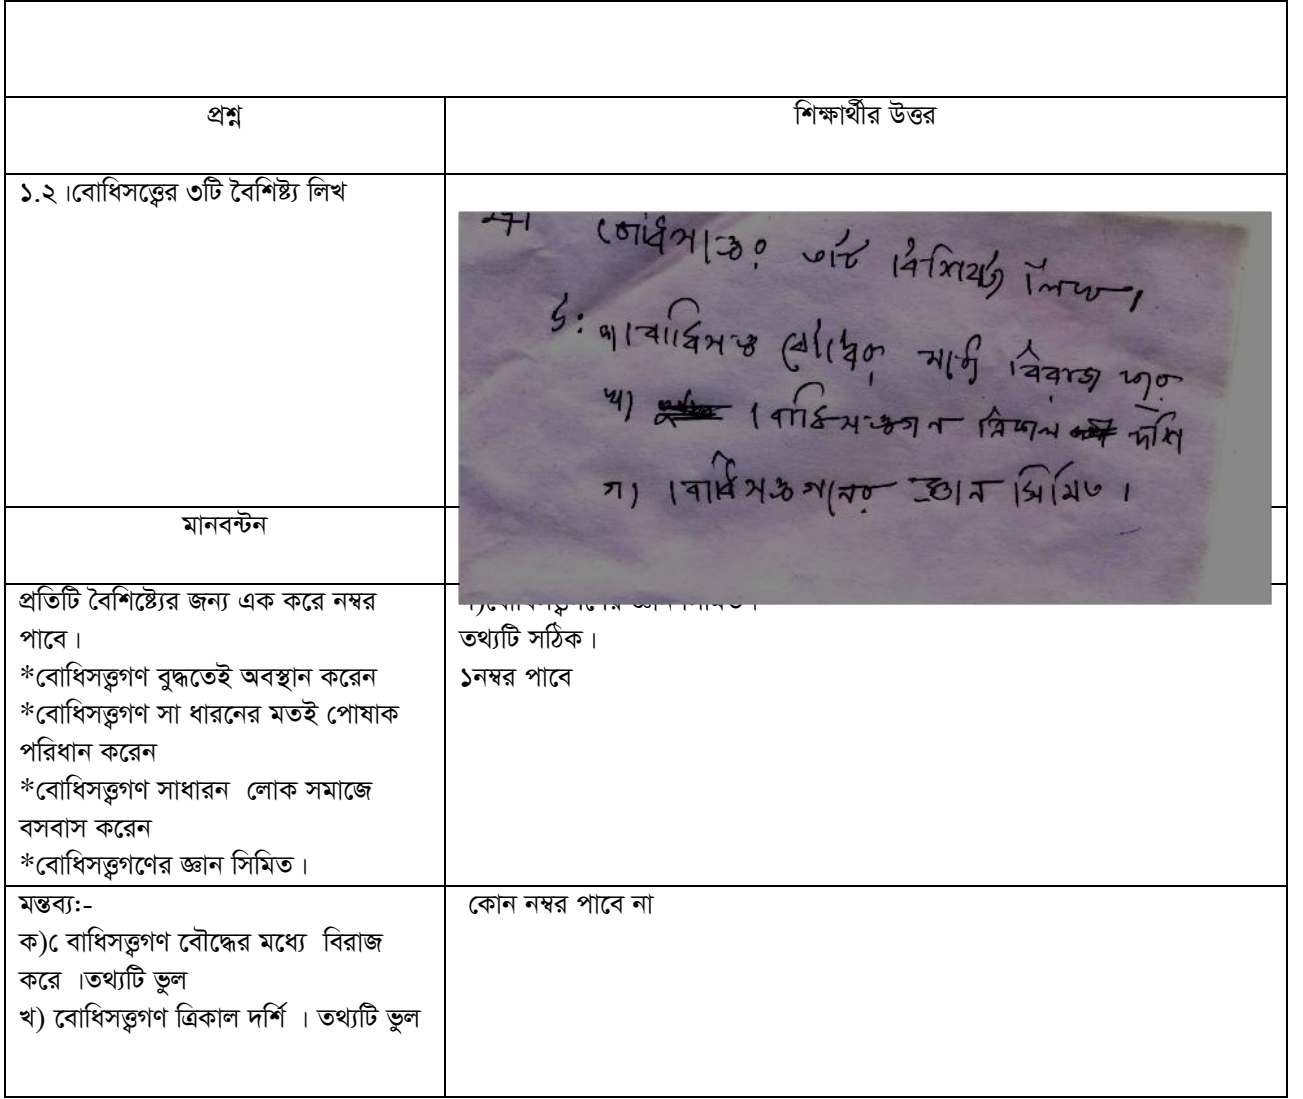 প্রশ্ন
শিক্ষার্থীর উত্তর
১.২।বোধিসত্ত্বের ৩টি বৈশিষ্ট্য লিখ
৩টি লিখ।
উ: ক) বোধিসত্ত্ব বৌদ্ধের মধ্যে বিরাজ করে
খ) বোধিসত্ত্বগন ত্রিকাল দর্শি
গ) বোধিসত্ত্বগনের জ্ঞান সিমিত।
মানবন্টন
প্রতিটি বৈশিষ্ট্যের জন্য এক করে নম্বর
পাবে।
*বোধিসত্ত্বগণ বুদ্ধতেই অবস্থান করেন
*বোধিসত্ত্বগণ সা ধারনের মতই পোষাক
পরিধান করেন
*বোধিসত্ত্বগণ সাধারন লোক সমাজে
বসবাস করেন
*বোধিসত্ত্বগণের জ্ঞান সিমিত।
তথ্যটি সঠিক।
১নম্বর পাবে
মন্তব্য:-
ক)ে বাধিসত্ত্বগণ বৌদ্ধের মধ্যে বিরাজ
করে ।তথ্যটি ভুল
খ) বোধিসত্ত্বগণ ত্রিকাল দর্শি । তথ্যটি ভুল
কোন নম্বর পাবে না